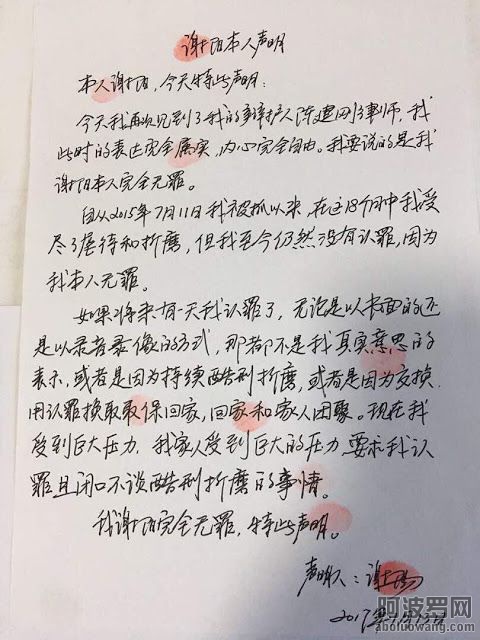 谢阳本人声明
本人谢阳,今天特此声明:
今天我再次见到了我的辩护人陈建刚律师,我
此时的表达完全属实,内心完全自由。我要说的是我
谢阳本人完全无罪。
自从2015年7月11日我被抓以来,在这18个月中我受
尽了虐待和折磨,但我至今仍然没有认罪,因为
我本人无罪。
如果将来有一天我认罪了,无论是以书面的还
是以录音录像的方式,那都不是我真实意思的
表示,或者是因为持续酷刑折磨,或者是因为交换
用认罪换取取保回家,回家和家人团聚。现在我
受到巨大压力,我家人受到巨大的压力,要求我认
罪且闭口不谈酷刑折磨的事情。
我谢阳完全无罪,特此声明。
声明人:谢阳
2017年1月13日
阿波罗网
aboluowang.com